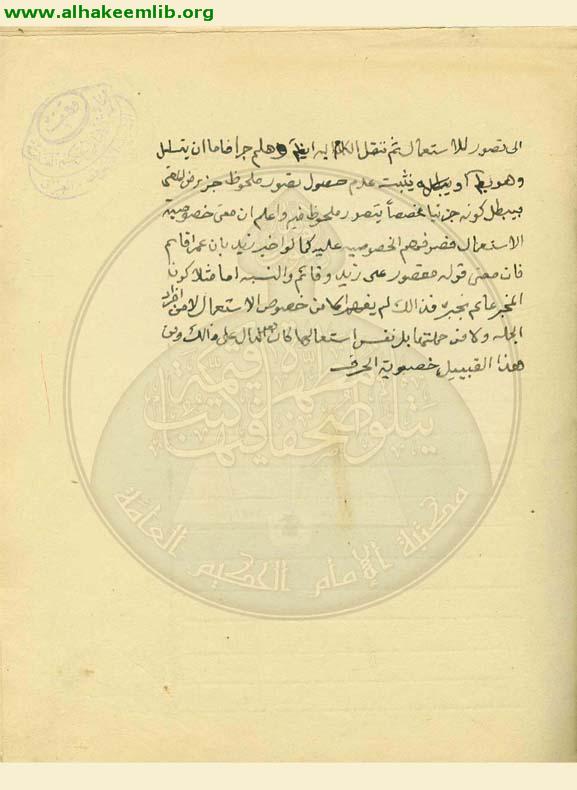 www.alhakeemlib.org
الى تصور للاستعمال ثم ننقل الكلام اليه ايضا وهلم جرا فاما ان يتسلسل
وهو بط او يبطل و يثبت عدم حصول تصور ملحوظ جزء من المعنى
فيبطل كونه جزئيا مخصصاً بتصور ملحوظ فيه واعلم ان معنى خصوصية
الاستعمال هو فهم الخصوصية عليه كما لو اخبر زيد بان عمرا قائم
فان معنى قوله مقصور على زيد وقائم والنسبة اما مثلا كون
المخبر عالم بخبره فذالك لم يفهم الا من خصوص الاستعمال لا من افراد
الجمله ولا من جملتها بل نفس استعمالها كان دال على ذالك ومن
هذا القبيل خصوصية الحرف
يتلو صحفا مطهرة فيها كتب قيمة
مكتبة الإمام الحكيم العامة